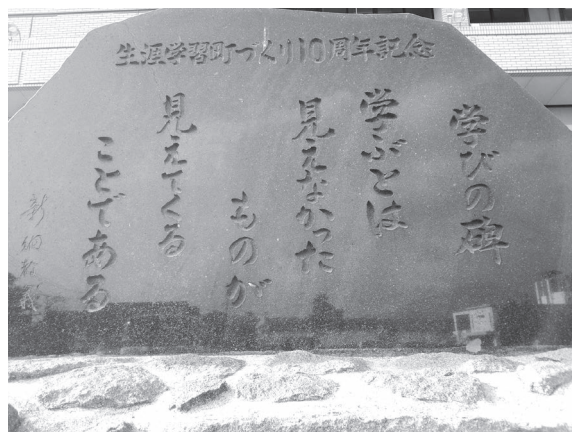 生涯学習町づくり10周年記念
学びの碑
学ぶとは
見えなかった
ものが
見えてくる
ことである